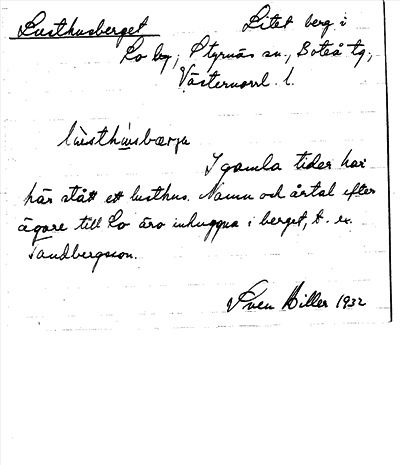 Lusthusberget Litet berg i
Lo by, Styrnäs sn., Boteå tg.,
Västernorrl. l.
lùsthúsbærja
I gamla tider har
här stått ett lusthus. Namn och årtal efter
ägare till Lo äro inhuggna i berget, t. ex.
Sandbergsson.
Sven Hiller 1932